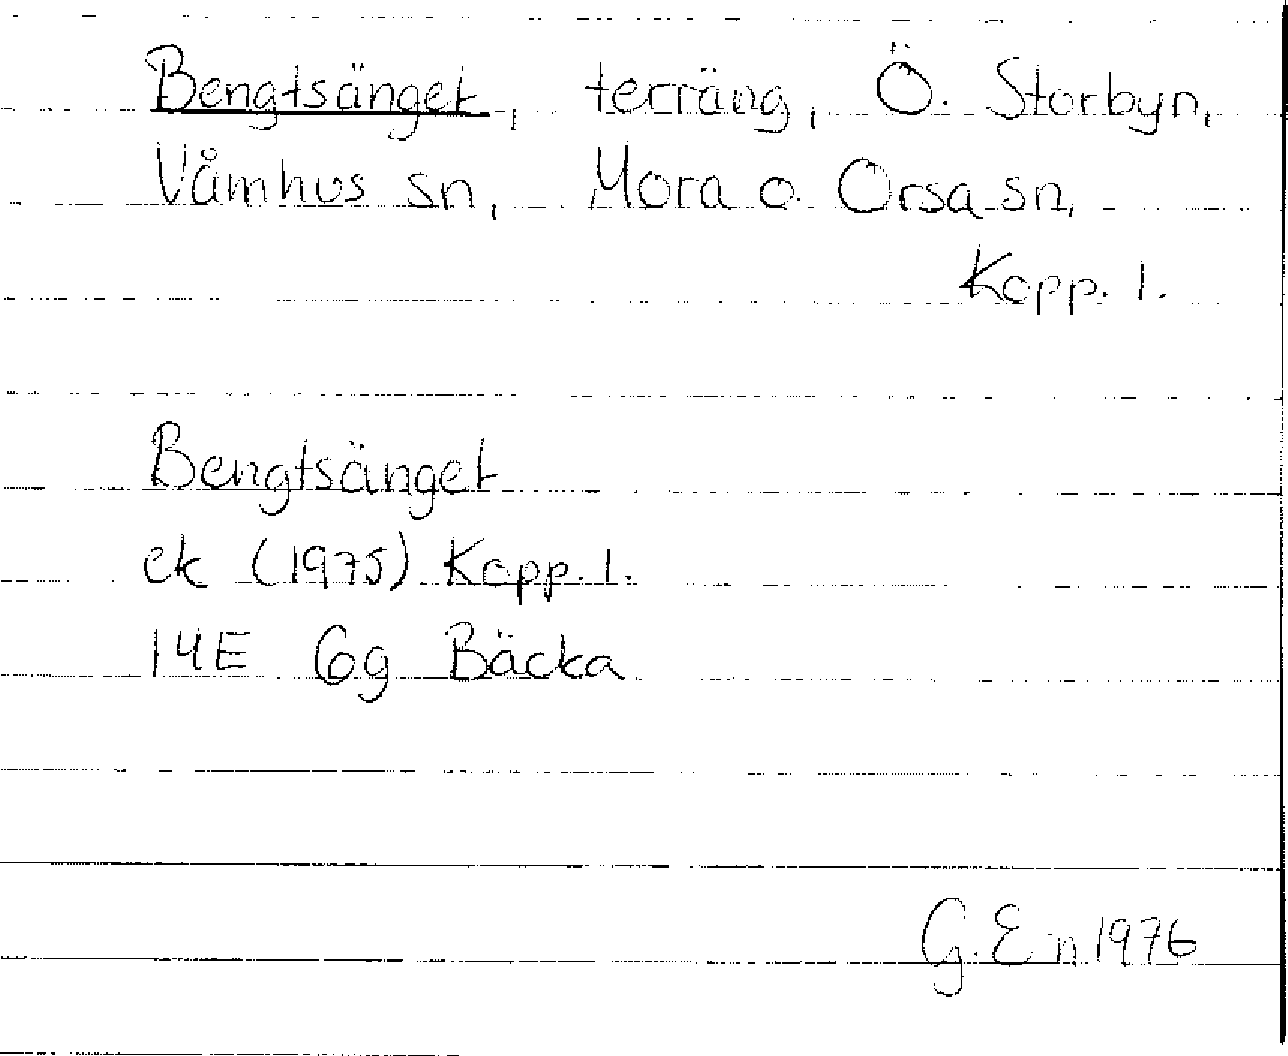 Bengtsänget, terräng, Ö. Storbyn,
Våmhus sn, Mora o. Orsa sn,
Kopp. l.
Bengtsänget
ek (1975) Kopp. l.
14E 6g Bäcka
G. E n 1976